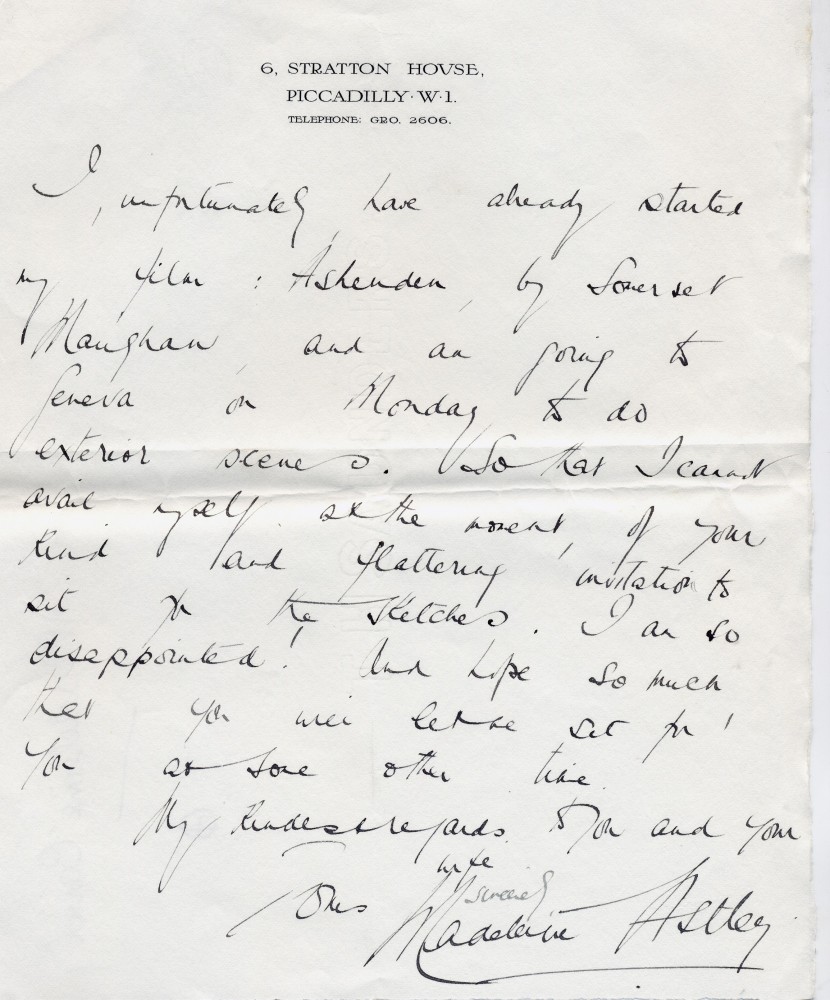 6, STRATTON HOVSE,
PICCADILLY·W·1.
TELEPHONE: GRO. 2606.
I, unfortunately, have already started
my film : Ashenden, by Somerset
Maugham, and am going to
Geneva on Monday to do
exterior scenes. So that I cannot
avail myself, at the moment, of your
kind and flattering invitation to
sit for the sketches. I am so
disappointed! And hope so much
that you will let me sit for
you at some other time.
My kindest regards to you and your
wife
Yours sincerely
Madeleine Astley